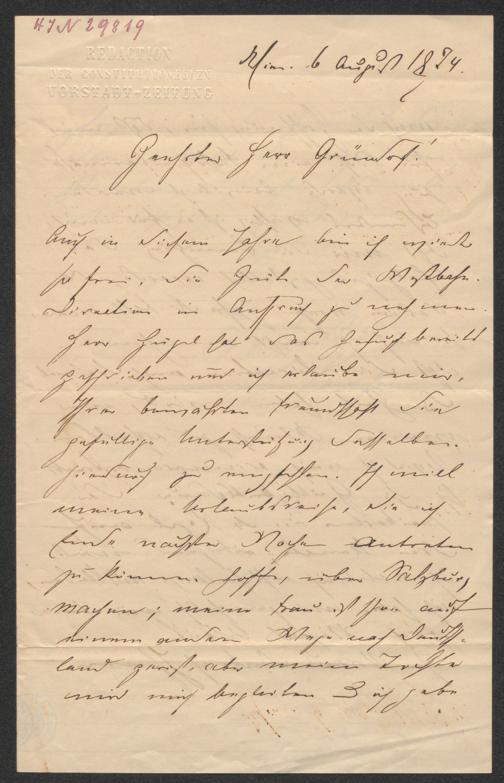 HIN 29819
REDACTION
DER CONSTITUTIONELLEN
VORSTADT-ZEITUNG
Wien. 6 August 1874.
Geehrter Herr Gründorf!
Auch in diesem Jahre bin ich wieder
so frei, die Güte der Westbahn-
Direction in Anspruch zu nehmen.
Herr Heigel hat das Gesuch bereits
geschrieben und ich erlaube mir,
Ihrer bewährten Freundschaft die
gefällige Unterstützung desselben
zu empfehlen. Ich will
meine Urlaubsreise, die ich
Ende nächster Woche antreten
zu können hoffe, über Salzburg
machen; meine Frau ist schon auf
einem andern Wege nach Deutsch-
land gereist, aber meine Tochter
wird mich begleiten & ich habe